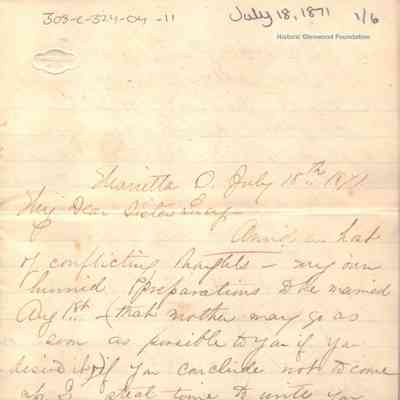 308-C-S24-04-11
July 18, 1871 1/6
Historic Glenwood Foundation
Marietta O. July 18th 1871
My Dear Sister Lucy—
Amid a
of conflicting thoughts — my own
hurried preparations to be married
Aug 1st — (that mother may go as
soon as possible to you if you
desire it) if you conclude not to come
I steal time to write you